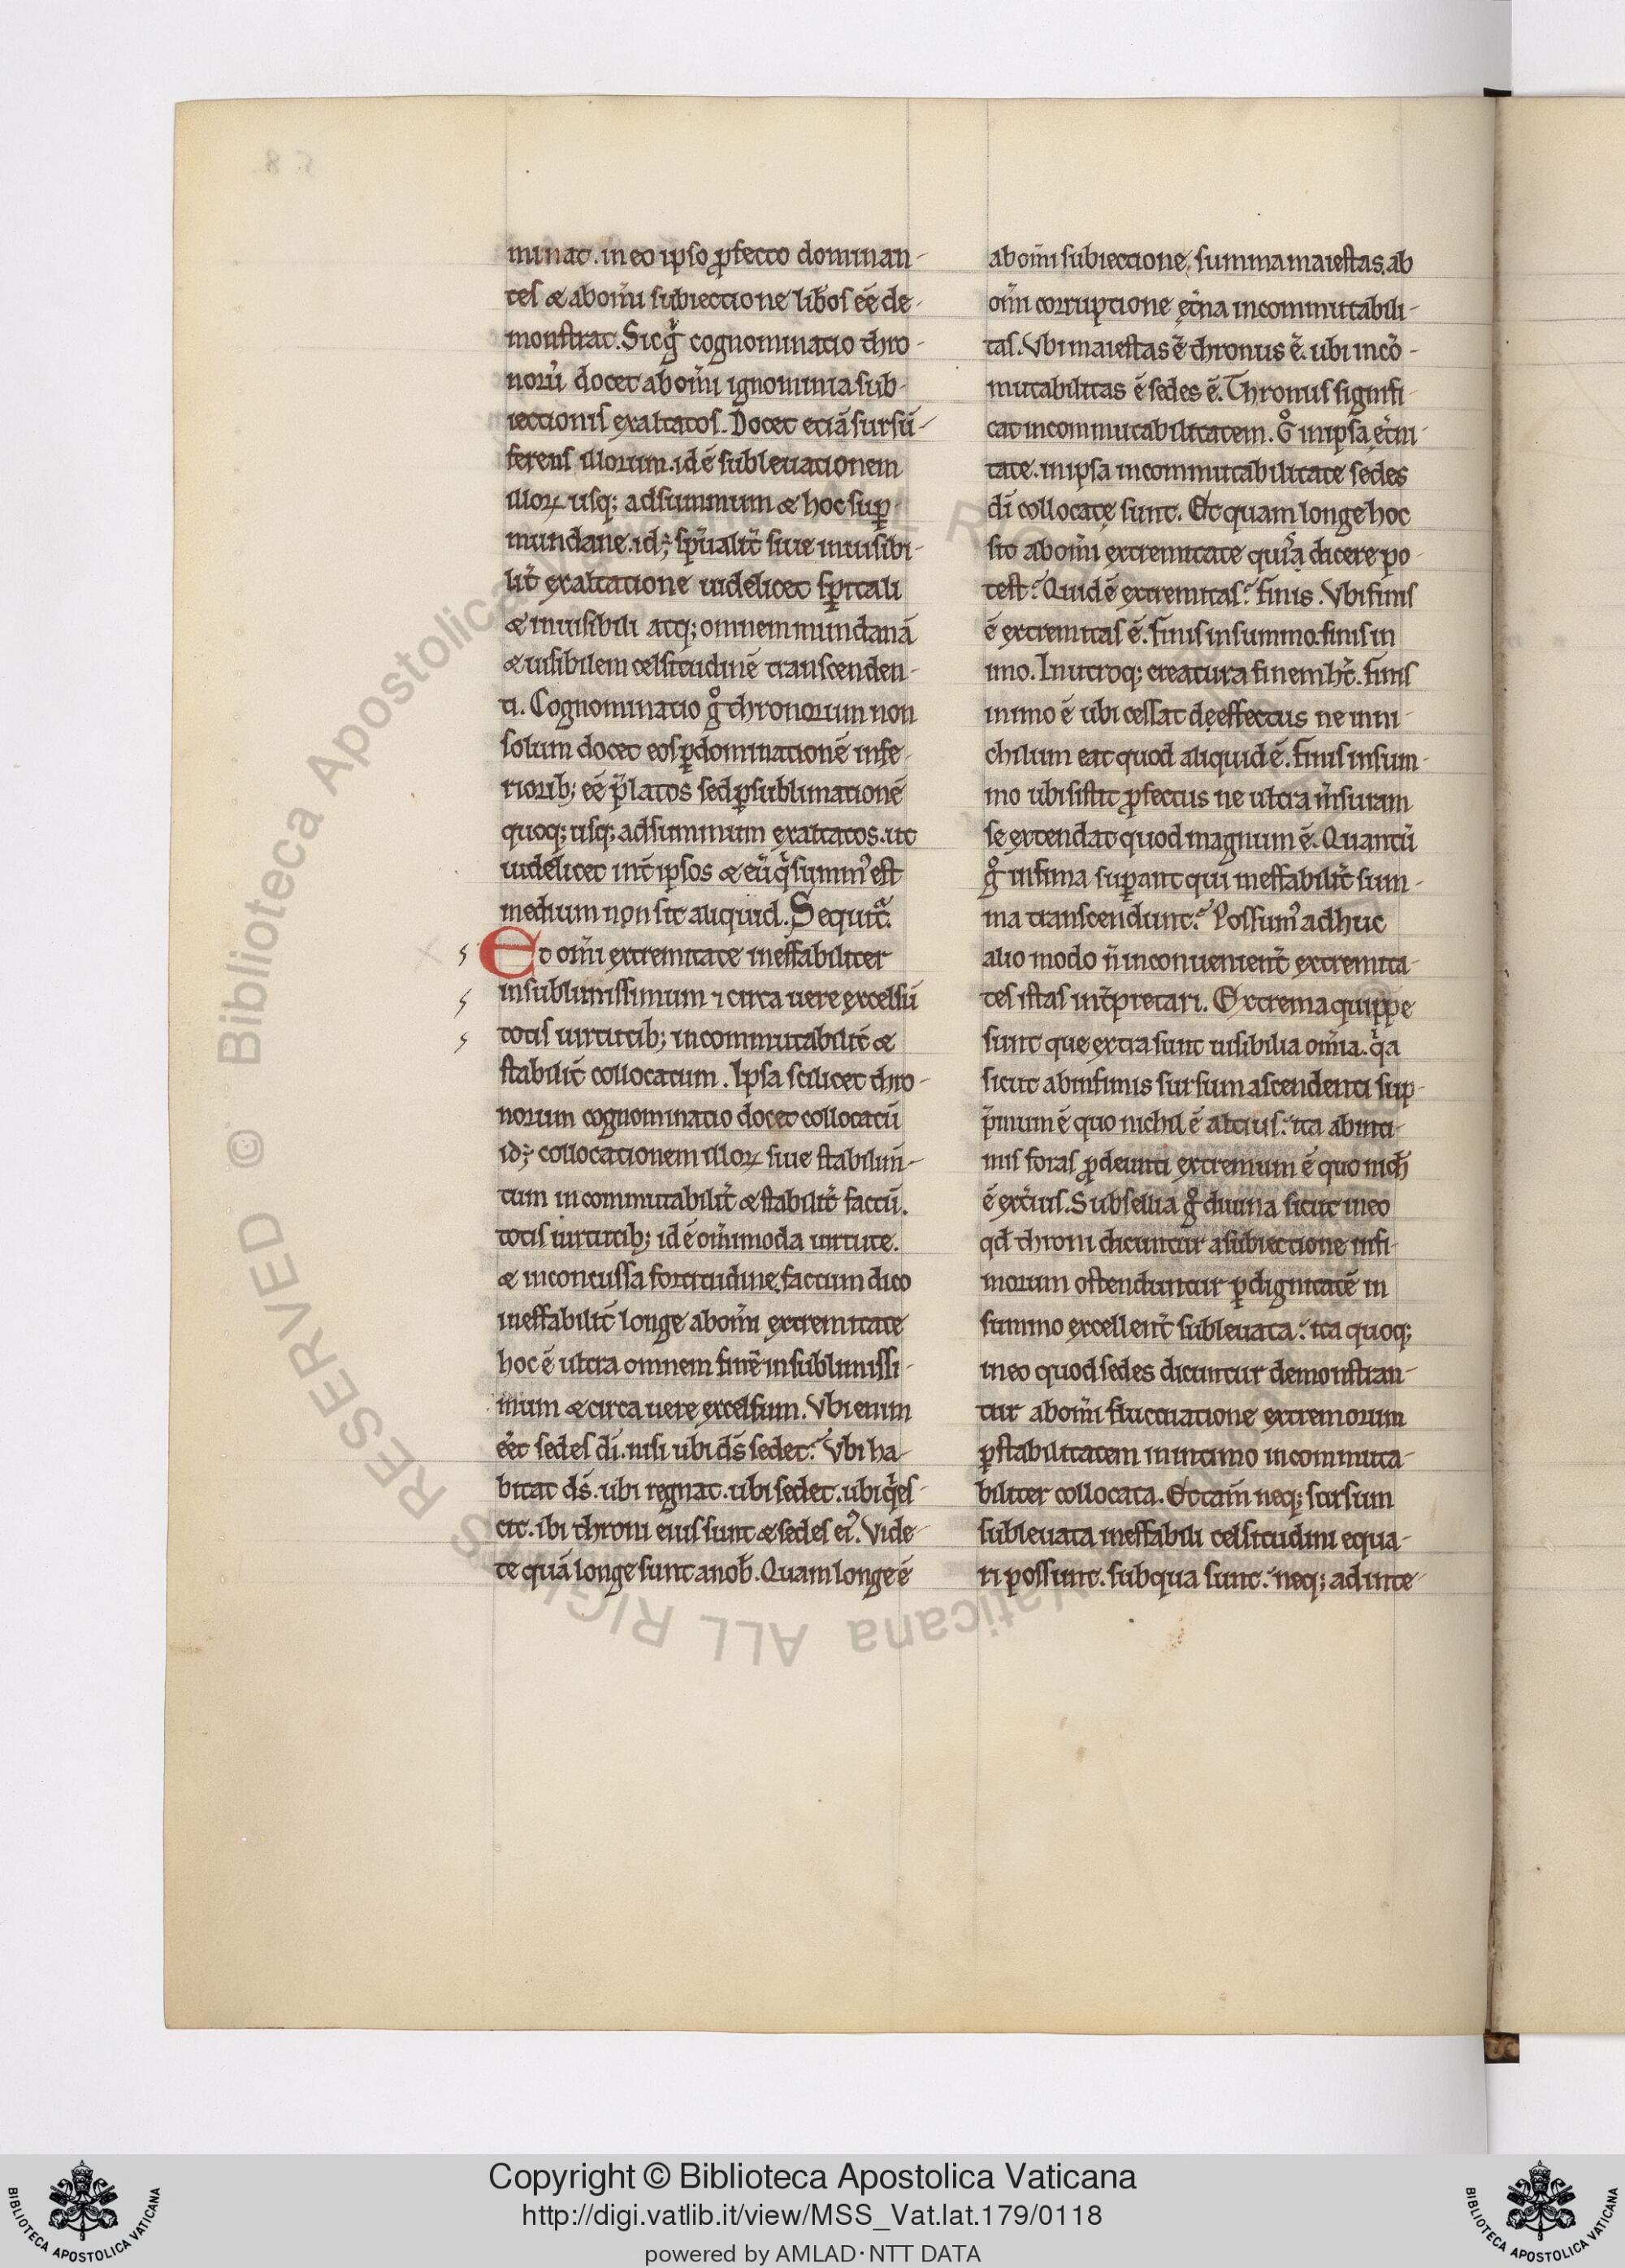 minat. in eo ipso ꝓfecto dominan-
tes & ab om̄i subiectione lib̄os eē de-
monstrat. Sic gͥ cognominatio thro-
norū docet ab om̄i ignominia sub-
iectionis exaltatos. Docet etiā sursū-
ferens illorum. id ē subleuationem
illoꝝ usq; ad summum & hoc suꝑ-
mundane. id; sp̄ualit̄ siue inuisibi-
lit̄ exaltatione uidelicet sp̄itali
& inuisibili atq; omnem mundanā
& uisibilem celsitudinē transcenden-
ti. Cognominatio gͦ thronorum non
solum docet eos ꝑ dominationē infe-
riorib; eē p̄latos sed ꝑ sublimationē
quoq; usq; ad summum exaltatos. ut
uidelicet int̄ ipsos & eū qͥ summ᷒ est
medium non sit aliquid. Sequit᷑.
Et om̄i extremitate ineffabiliter
in sublimissimum ⁊ circa uere excelsū
totis uirtutib; incommutabilit̄ &
stabilit̄ collocatum. Ipsa scilicet thro-
norum cognominatio docet collocatū
id; collocationem illoꝝ siue stabilim̄-
tum incommutabilit̄ & stabilit̄ factū.
totis uirtutib; id ē om̄imoda uirtute.
& inconcussa fortitudine. factum dico
ineffabilit̄ longe ab om̄i extremitate
hoc ē ultra omnem finē in sublimissi-
mum & circa uere excelsum. Vbi enim
eēt sedes dī. nisi ubi ds̄ sedet? Vbi ha-
bitat ds̄. ubi regnat. ubi sedet. ubi qͥes-
cit. ibi throni eius sunt & sedes ei᷒. Vide-
te quā longe sunt a nob̄. Quam longe ē
ab om̄i subiectione, summa maiestas. ab
om̄i corruptione ęt̄na incommutabili-
tas. Vbi maiestas ē thronus ē. ubi incō-
mutabilitas ē sedes ē. Thronus signifi-
cat incommutabilitatem. Gͦ in ipsa ęt̄ni-
tate. in ipsa incommutabilitate sedes
dī collocatę sunt. Et quam longe hoc
sit ab om̄i extremitate quis dicere po-
test? Quid ē extremitas? finis. Vbi finis
ē extremitas ē. finis in summo. finis in
imo. In utroq; creatura finem ht̄. finis
in imo ē ubi cessat deeffectus ne in ni-
chilum eat quod aliquid ē. finis in sum-
mo ubi sistit ꝓfectus ne ultra m̄suram
se extendat quod magnum ē. Quantū
gͦ infima suꝑant qui ineffabilit̄ sum-
ma transcendunt? Possum᷒ adhuc
alio modo n̄ inconuenient̄ extremita-
tes istas int̄pretari. Extrema quippe
sunt que extra sunt uisibilia om̄ia. qͥa
sicut ab infimis sursum ascendenti sup-
p̄mum ē quo nichil ē altius: ita ab inti-
mis foras ꝓdeunti extremum ē quo nich̄
ē ext̄ius. Subsellia gͦ diuina sicut in eo
qd̄ throni dicuntur a subiectione infi-
morum ostenduntur ꝑ dignitatē in
summo excellent̄ subleuata: ita quoq;
in eo quod sedes dicuntur demonstran-
tur ab om̄i fluctuatione extremorum
ꝑ stabilitatem in intimo incommuta-
biliter collocata. Et tam̄ neq; sursum
subleuata ineffabili celsitudini equa-
ri possunt. sub qua sunt: neq; ad inte-
Copyright © Biblioteca Apostolica Vaticana
http://digi.vatlib.it/view/MSS_Vat.lat.179/0118
powered by AMLAD·NTT DATA
BIBLIOTECA APOSTOLICA VATICANA
BIBLIOTECA APOSTOLICA VATICANA
© Biblioteca Apostolica Vaticana ALL RIGHTS RESERVED